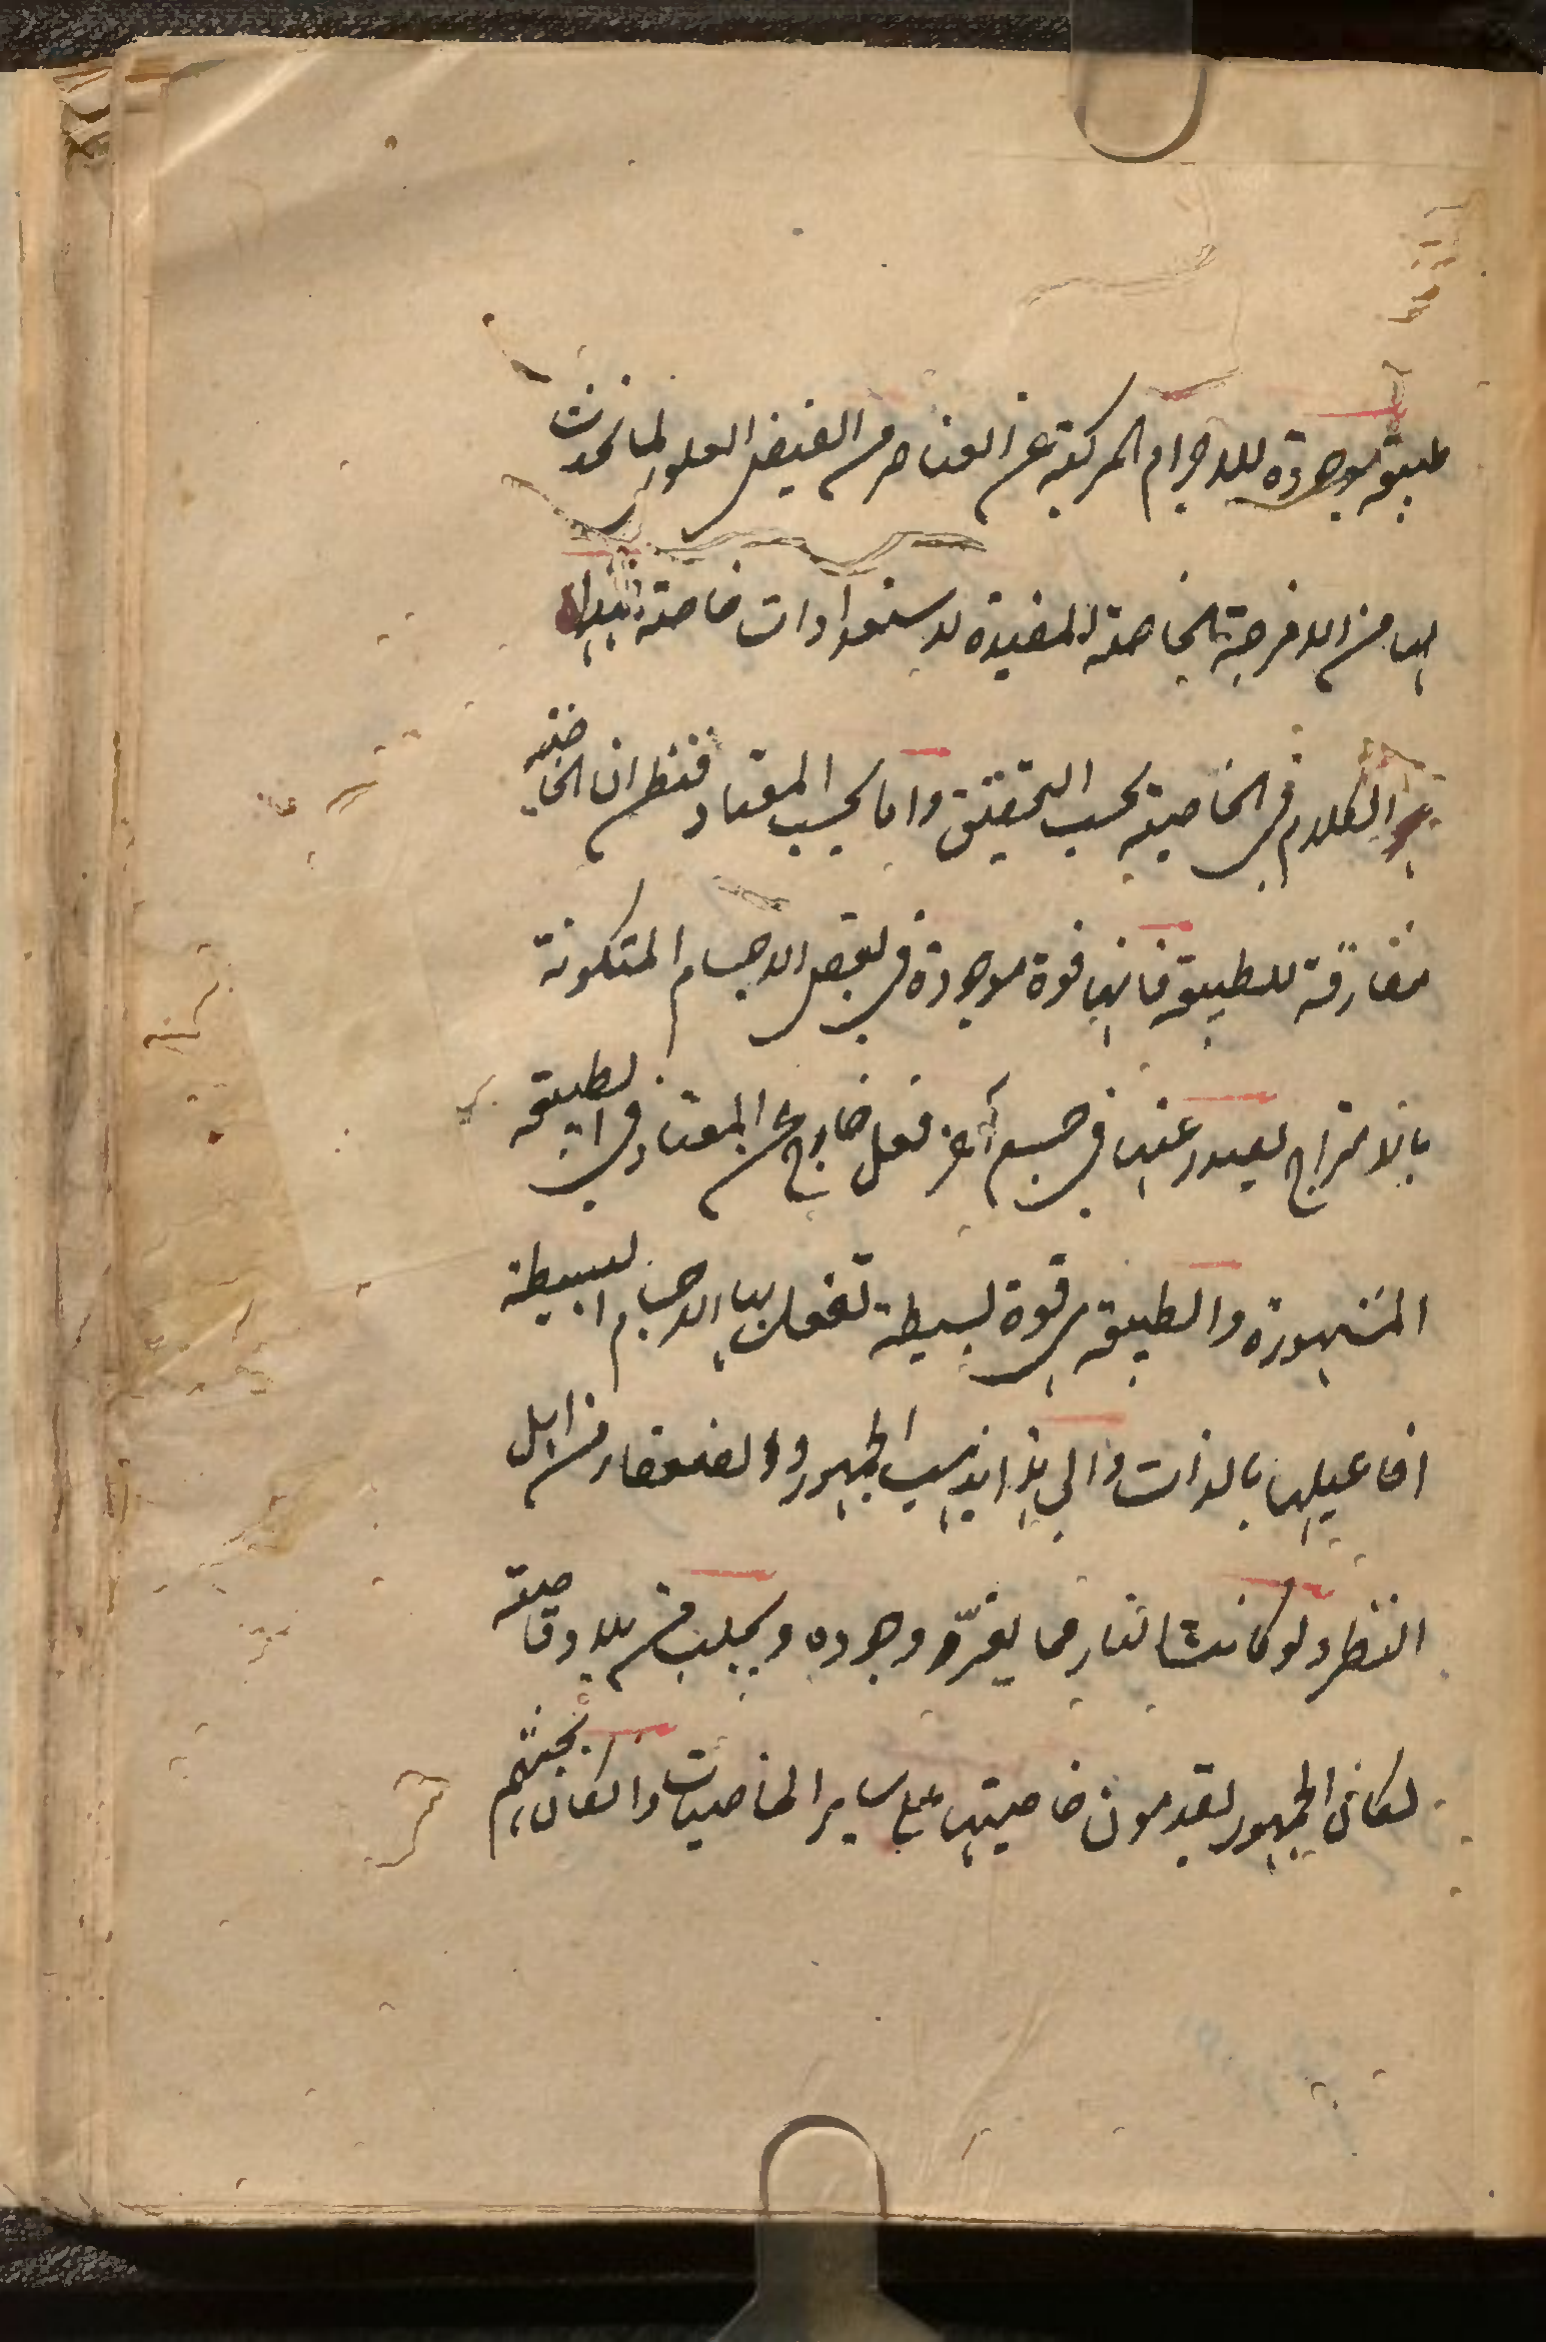 طبيعة موجودة للاجرام المركبة عن العناصر من الفيض العلوي لما تحدث
لها من الامزجة الخاصة المفيدة لاستعدادات خاصة فهذا
هو الكلام في الخاصية بحسب التحقيق واما بحسب المعتاد فنظن ان الخاصية
مفارقة للطبيعة فانها قوة موجودة في بعض الاجسام المتكونة
بالامتزاج يصدر عنها في جسم آخر فعل خارج عن المعتاد في الطبيعة
المشهورة والطبيعة هي قوة بسيطة تفعل بها الاجسام البسيطة
افاعيلها بالذات والى هذا يذهب الجمهور والضعفاء من اهل
النظر ولو كانت النار مما يعزّ وجوده ويجلب من بلاد قاصية
لكان الجمهور يقدمون خاصيتها على ساير الخاصيات ولكان بحثهم